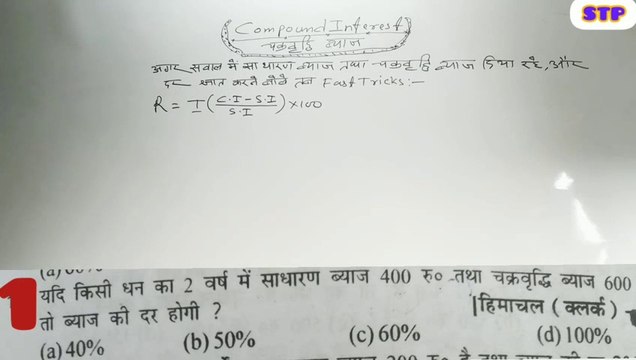 STP
Compound Interest
चक्रवृद्धि ब्याज
अगर सवाल में साधारण ब्याज तथा चक्रवृद्धि ब्याज दिया रहे, और
दर ज्ञात करने बोले तब Fast Tricks:-
R = T(C.I-S.I/S.I)×100
1
यदि किसी धन का 2 वर्ष में साधारण ब्याज 400 रु० तथा चक्रवृद्धि ब्याज 600
तो ब्याज की दर होगी ?
|हिमाचल (क्लर्क)
(a) 40% (b) 50% (c) 60% (d) 100%